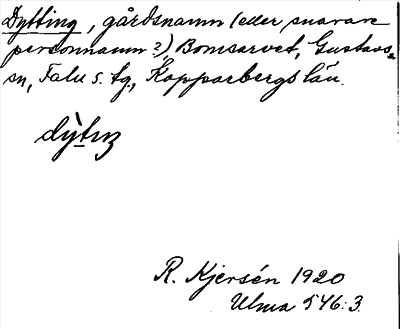 Dytting, gårdsnamn (eller snarare
personnamn?), Bomsarvet, Gustavs
sn, Falu s. tg., Kopparbergs län.
dỳtıŋ
R. Kjersén 1920
Ulma 546:3.